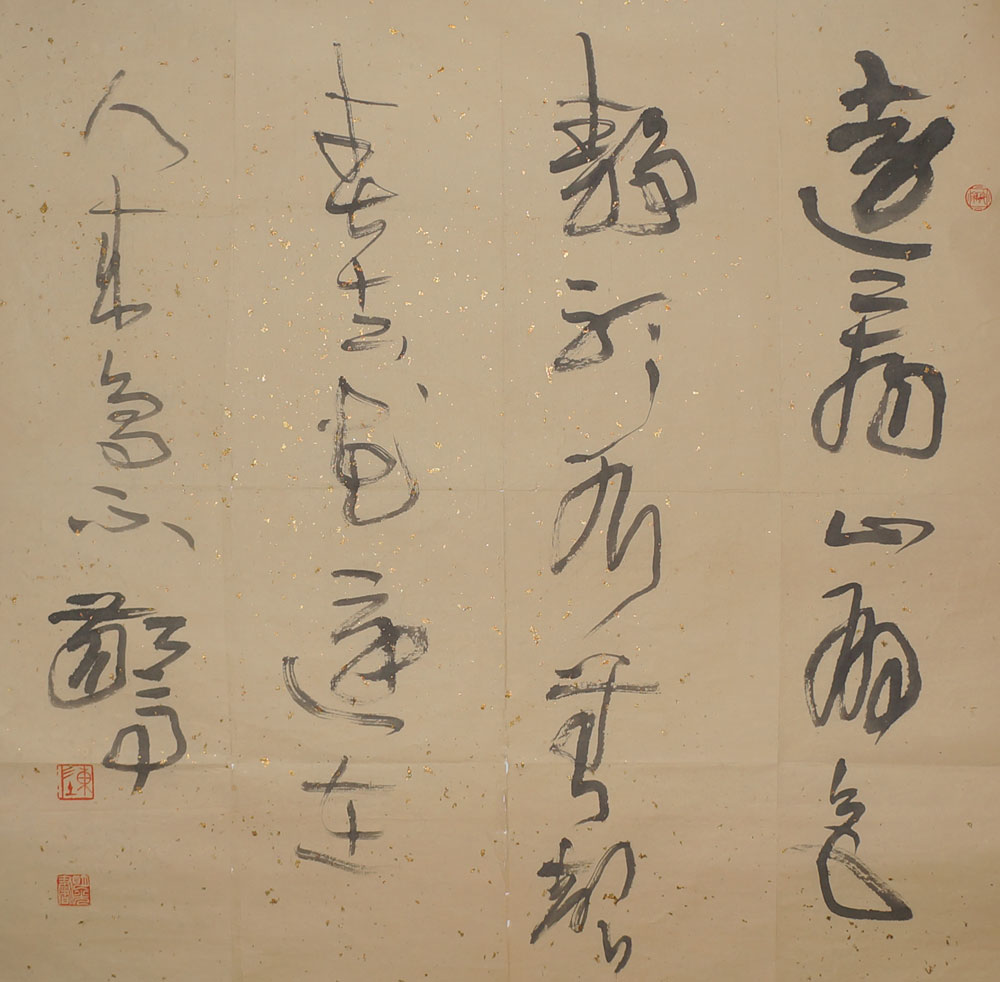 遠看山有色
靜聽水無聲
春去花還在
人來鳥不驚